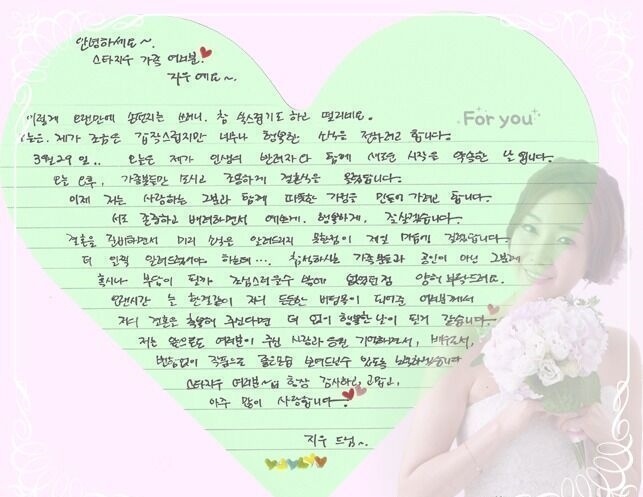 안녕하세요~.
스타지우 가족 여러분.
지우예요~.
이렇게 오랜만에 손편지를 쓰려니, 참 쑥스럽기도 하고 떨리네요.
For you
오늘은. 제가 조금은 갑작스럽지만 너무나 행복한 소식을 전하려고 합니다.
3월 29일.. 오늘은 제가 인생의 반려자와 함께 새로운 시작을 약속한 날입니다.
오늘 오후, 가족분들만 모시고 조용하게 결혼식을 올립니다.
이제 저는 사랑하는 그분과 함께 따뜻한 가정을 만들어 가려고 합니다.
서로 존중하고 배려하면서 예쁘게. 행복하게, 잘 살겠습니다.
결혼을 준비하면서 미리 소식을 알려드리지 못한점이 제일 마음에 걸렸습니다.
더 일찍 알려드렸어야 하는데…. 참석하시는 가족분들과 공인이 아닌 그분께
혹시나 부담이 될까 조심스러울수 밖에 없었던점 양해 부탁드려요.
오랜시간 늘 한결같이 저의 든든한 버팀목이 되어준 여러분께서
저의 결혼을 축복해 주신다면 더 없이 행복한 날이 될거 같습니다.
저는 앞으로도 여러분이 주신 사랑과 응원 기억하면서, 배우로서,
변함없이 작품으로 좋은모습 보여드릴수 있도록 노력하겠습니다
스타지우 여러분~ 항상 감사하고, 고맙고,
아주 많이 사랑합니다~!
지우 드림~